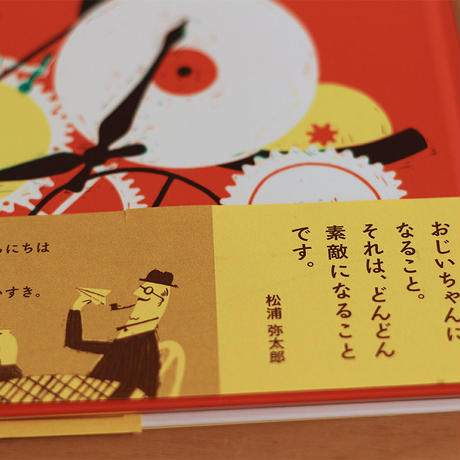 おじいちゃんに
なること。
それは、どんどん
素敵になること
です。
松浦 弥太郎
にちは
すき。